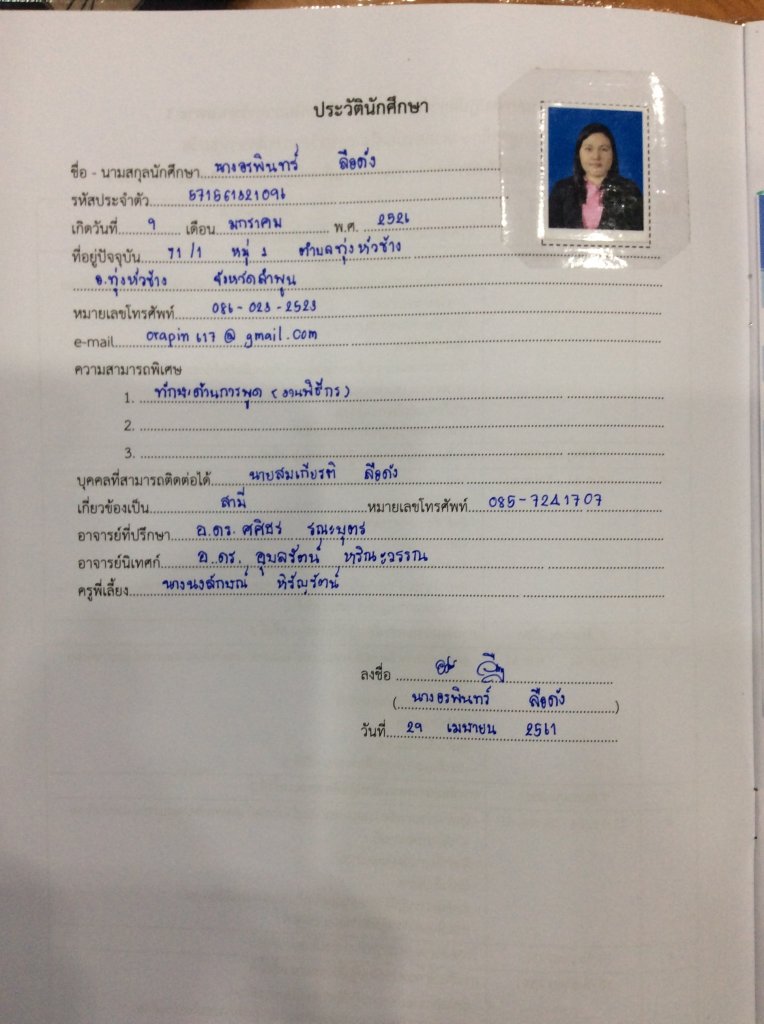 ประวัตินักศึกษา
ชื่อ - นามสกุลนักศึกษา นางอรพินทร์ ลือดัง
รหัสประจำตัว 571561321096
เกิดวันที่ 9 เดือน มกราคม พ.ศ. 2526
ที่อยู่ปัจจุบัน 71/1 หมู่ 1 ตำบลทุ่งหัวช้าง
อ.ทุ่งหัวช้าง จังหวัดลำพูน
หมายเลขโทรศัพท์ 086-023-2523
e-mail orapin617@gmail.com
ความสามารถพิเศษ
1. ทักษะด้านการพูด (งานพิธีกร)
2.
3.
บุคคลที่สามารถติดต่อได้ นายสมเกียรติ ลือดัง
เกี่ยวข้องเป็น สามี หมายเลขโทรศัพท์ 085-7241707
อาจารย์ที่ปรึกษา อ.ดร. ศศิธร รณะบุตร
อาจารย์นิเทศก์ อ.ดร. อุบลรัตน์ หริณวรรณ
ครูพี่เลี้ยง นางนงลักษณ์ หิรัญรัตน์
ลงชื่อ
(นางอรพินทร์ ลือดัง)
วันที่ 29 เมษายน 2561